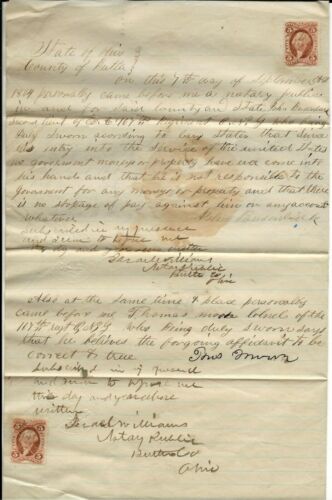 State of Ohio }
County of Butler }
On this 7th day of September
1864 personally came before me a notary public
in and for said county and State John
of Co E 167th Regiment O N G who being
Duly Sworn according to law states that Since
his entry into the Service of the united States
no government money or property have ever come into
his hands and that he is not responsible to the
government for any money or property and that there
is no stopage of pay against him on any account
whatever
Subscribed in my presence
and Sworn to before me
this day and year above written
Israel Williams
Notary Public
Butler Co
Ohio
Also at the same time & place personally
came before me Thomas Moore Colonel of the
167th regt O N G who being duly sworn says
that he believes the forgoing affidavit to be
correct & true Thos Moore
Subscribed in my presence
and sworn to before me
this day and year above
written
Israel Williams
Notary Public
Butler Co
Ohio